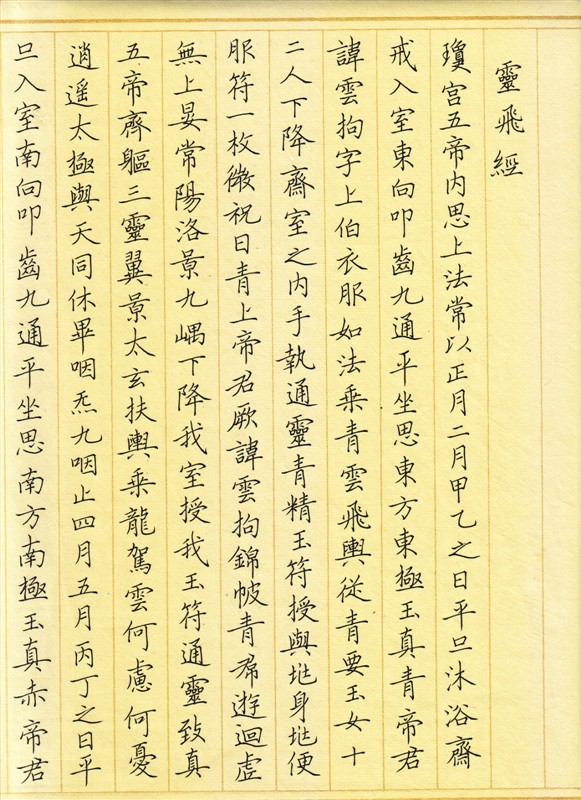 靈飛經
瓊宮五帝内思上法常以正月二月甲乙之日平旦沐浴齋
戒入室東向叩齒九通平坐思東方東極玉真青帝君
諱雲拘字上伯衣服如法乘青雲飛輿從青要玉女十
二人下降齋室之内手執通靈青精玉符授與兆身兆便
服符一枚微祝曰青上帝君厥諱雲拘錦帔青帬遊迴虛
無上晏常陽洛景九嵎下降我室授我玉符通靈致真
五帝齊軀三靈翼景太玄扶輿乘龍駕雲何慮何憂
逍遥太極與天同休畢咽炁九咽止四月五月丙丁之日平
旦入室南向叩齒九通平坐思南方南極玉真赤帝君